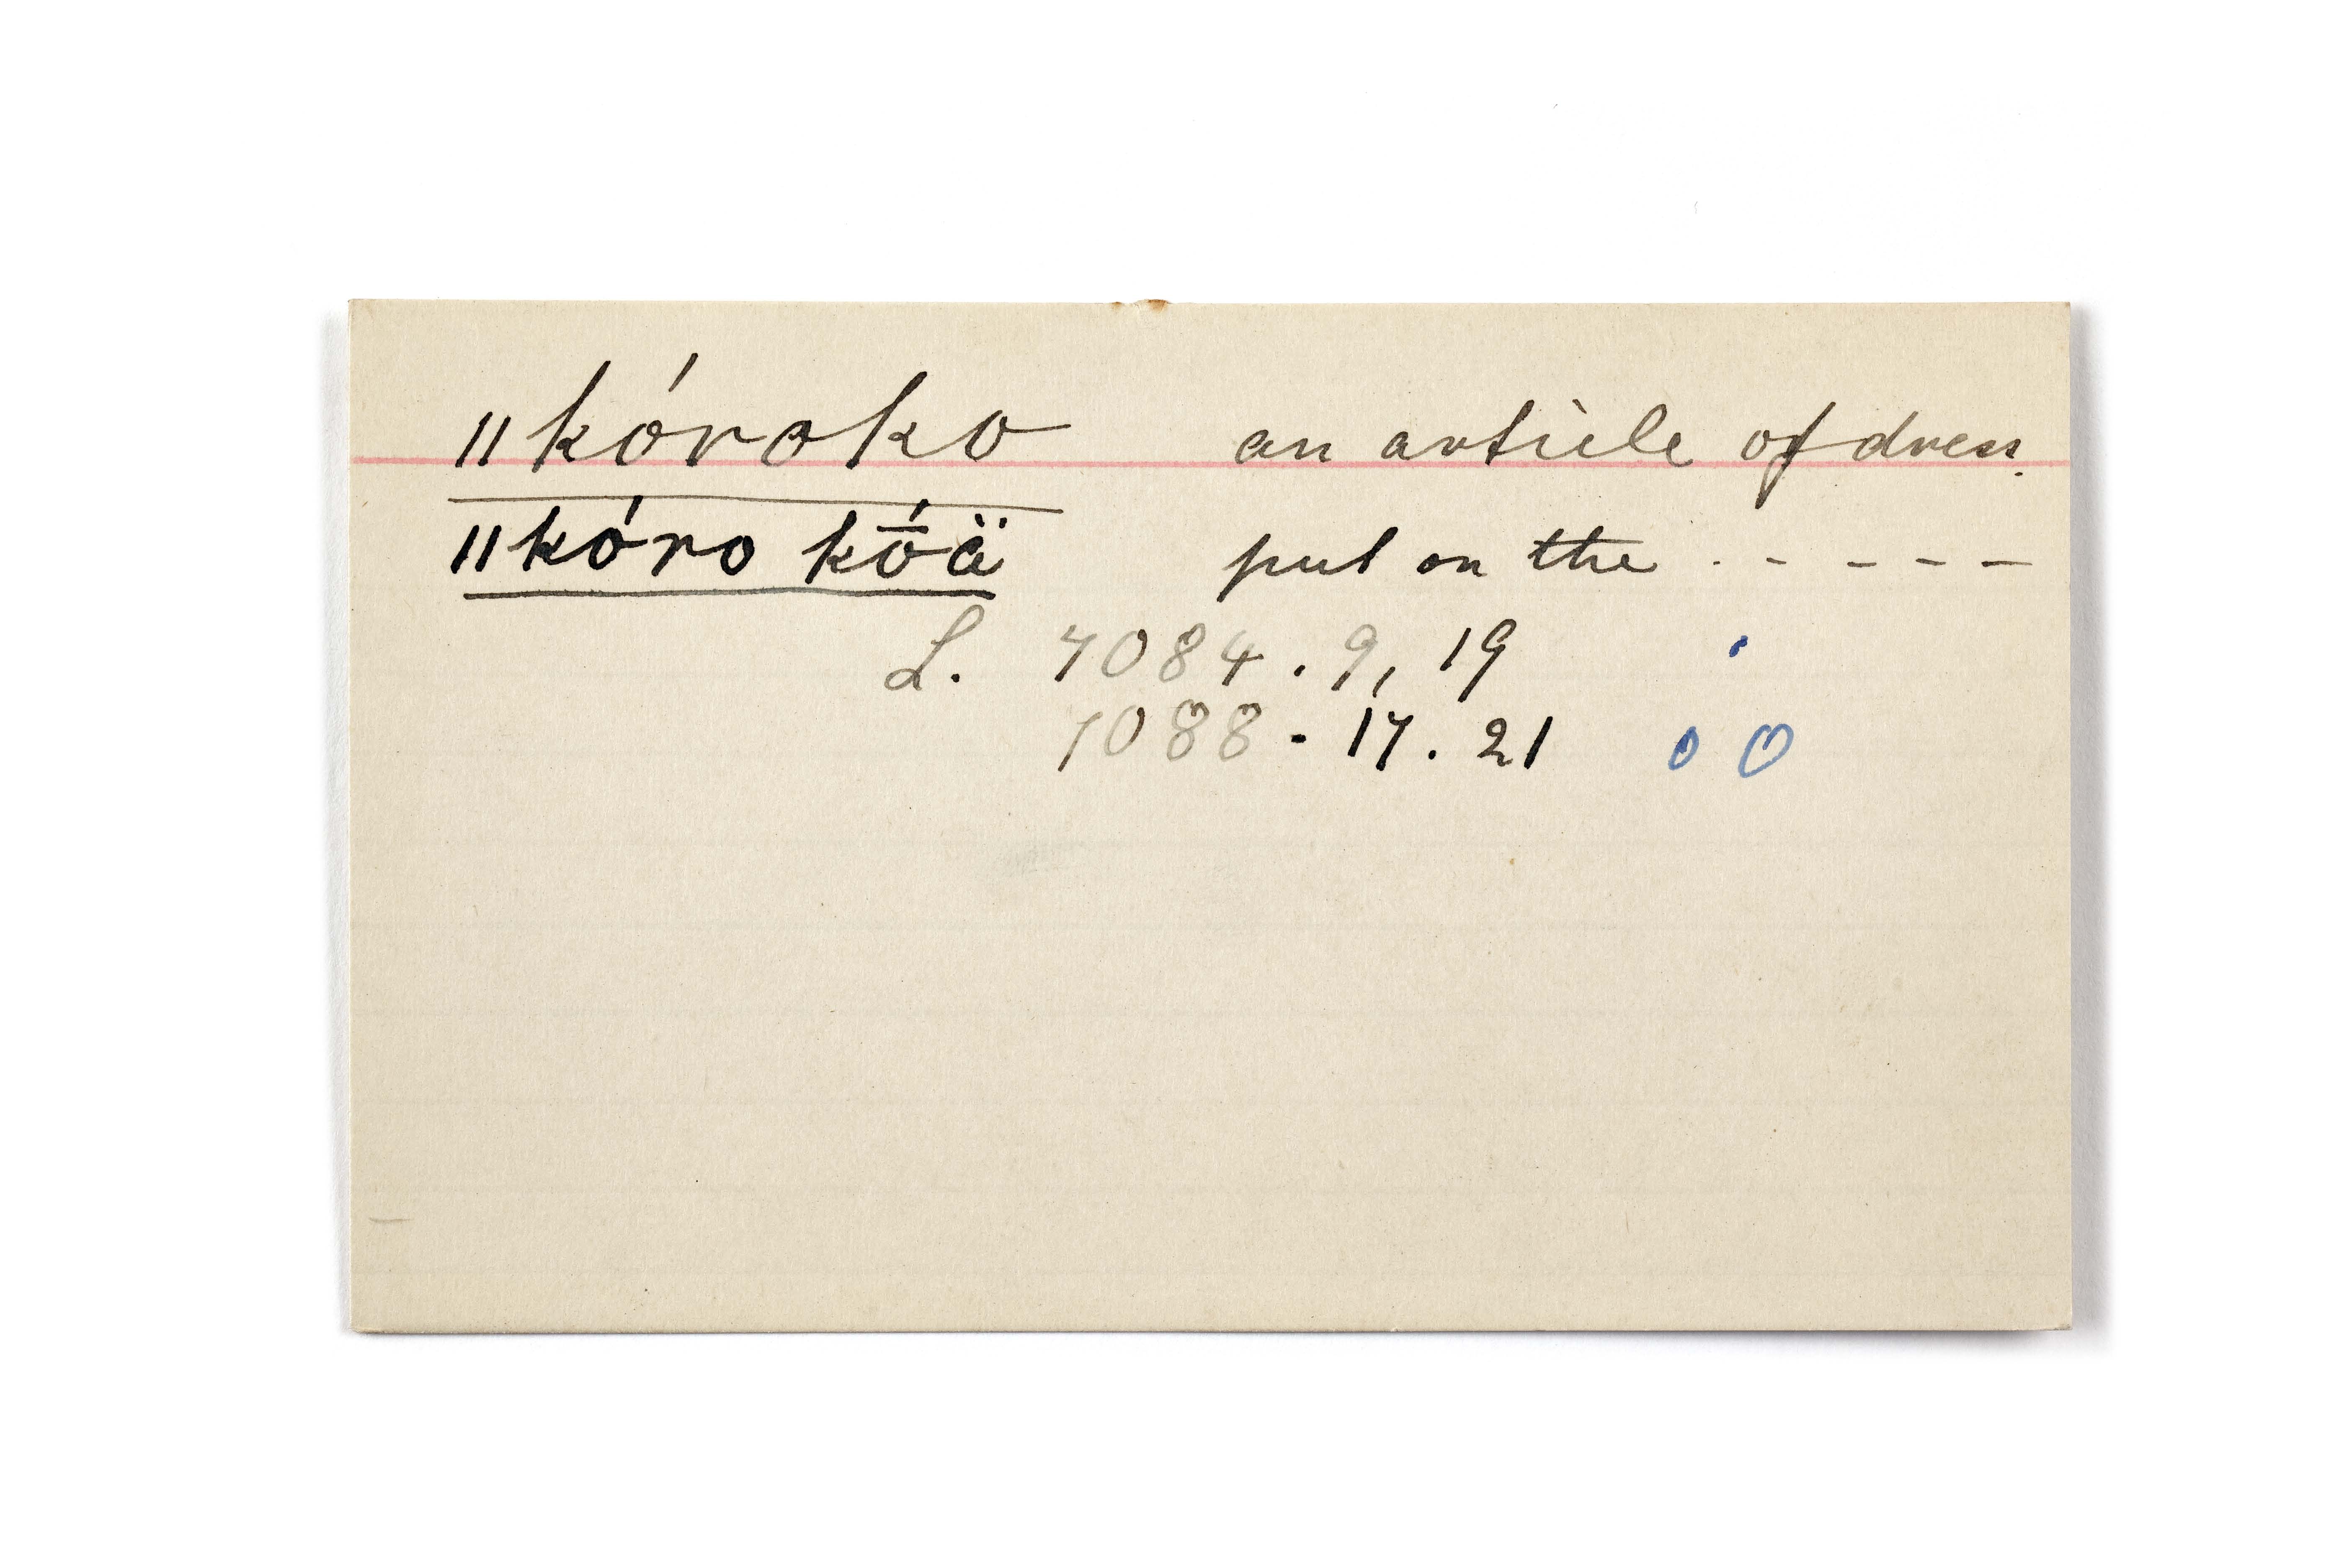 ‖kóroko an article of dress.
‖kóro kṓä put on the . - - - -
L. 7084 . 9, 19
7088 - 17 . 21